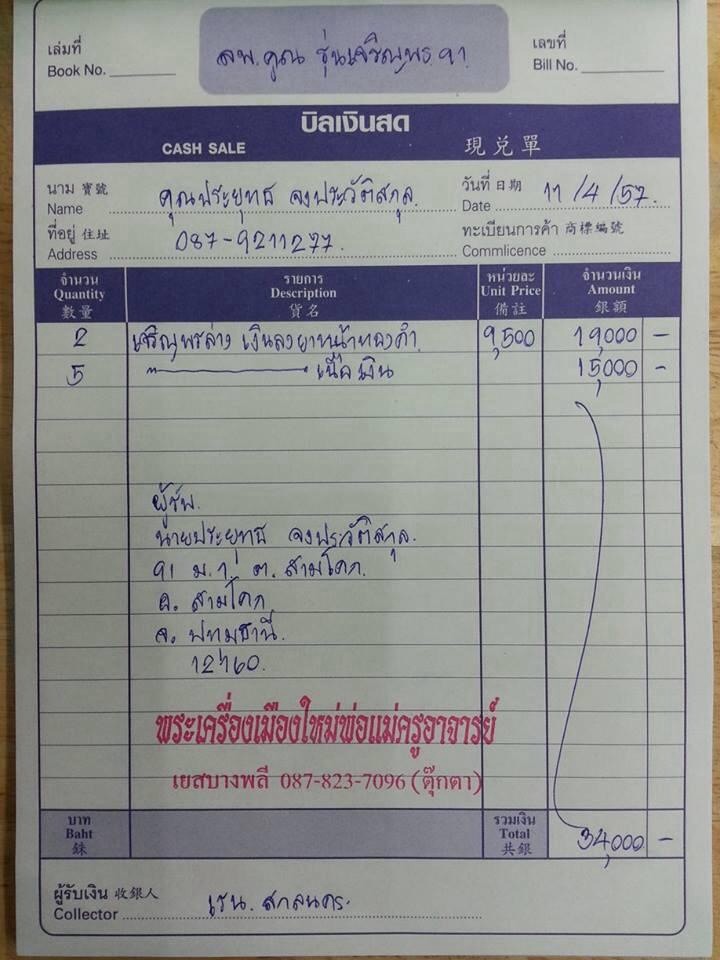 เล่มที่
Book No.
ลพ.คูณ รุ่นเจริญพร 91
เลขที่
Bill No.
บิลเงินสด
CASH SALE 現兑單
นาม 寶號
Name
คุณประยุทธ จงประวัติสกุล
วันที่ 日期
Date 11/4/57.
ที่อยู่ 住址
Address
087-9211277.
ทะเบียนการค้า 商標編號
Commlicence
จำนวน รายการ หน่วยละ จำนวนเงิน
Quantity Description Unit Price Amount
數量 貨名 備註 銀額
2 เจริญพรล่าง เงินลงยาหน้าทองคำ 9,500 19,000 -
5 " เนื้อเงิน 15,000 -
ผู้รับ.
นายประยุทธ จงประวัติสกุล.
91 ม.1 ต. สามโคก.
อ. สามโคก
จ. ปทุมธานี.
12160.
พระเครื่องเมืองใหม่พ่อแม่ครูอาจารย์
เยสบางพลี 087-823-7096 (ตุ๊กตา)
บาท
Baht
銖
รวมเงิน
Total
共銀
34,000 -
ผู้รับเงิน 收銀人
Collector
เรน. สกลนคร